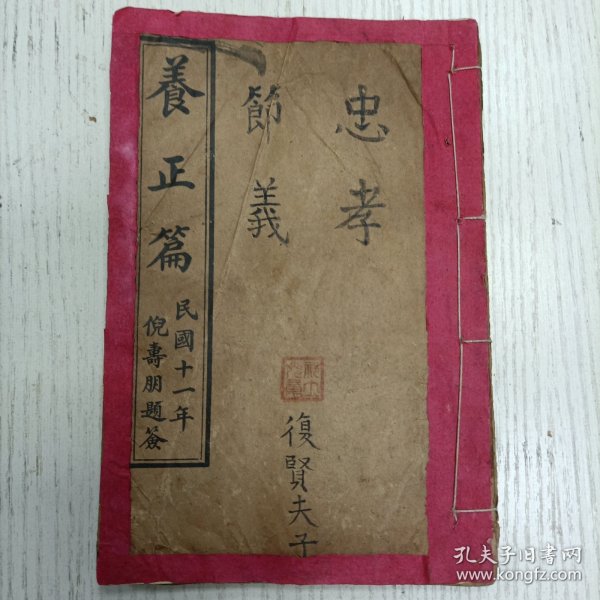 忠孝
節義
復賢夫子
養正篇
民國十一年
倪壽朋題簽
孔夫子旧书网
www.kongfz.com